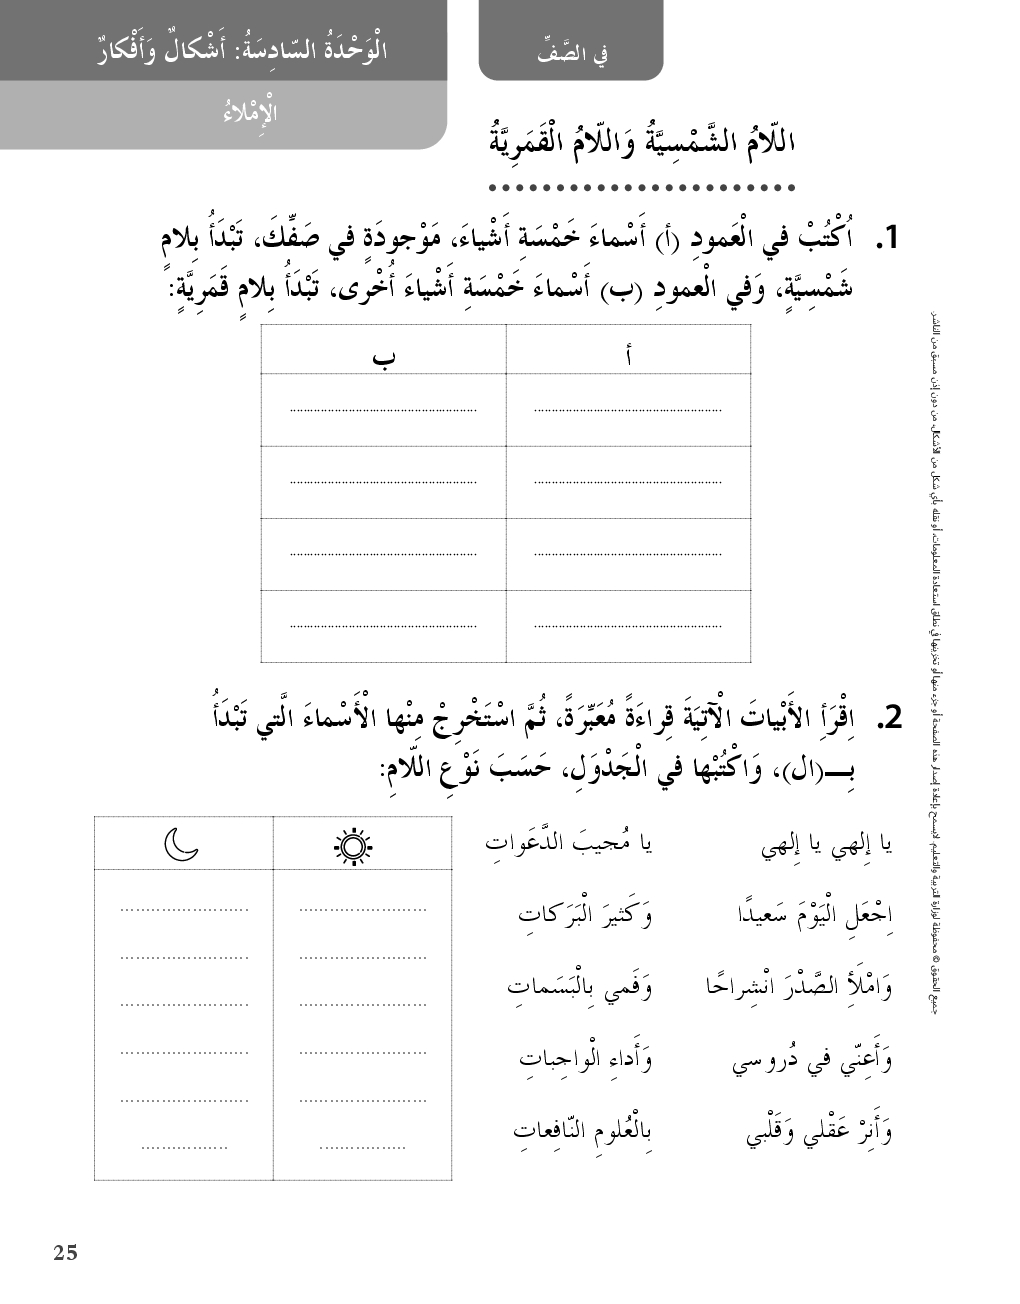 فِي الصَّفِّ
الْوَحْدَةُ السّادِسَةُ: أَشْكالٌ وَأَفْكارٌ
الْإِمْلاءُ
اللّامُ الشَّمْسِيَّةُ وَاللّامُ الْقَمَرِيَّةُ
1. اُكْتُبْ في الْعَمودِ (أ) أَسْماءَ خَمْسَةِ أَشْياءَ، مَوْجودَةٍ في صَفِّكَ، تَبْدَأُ بِلامٍ
شَمْسِيَّةٍ، وَفي الْعمودِ (ب) أَسْماءَ خَمْسَةِ أَشْياءَ أُخْرى، تَبْدَأُ بِلامٍ قَمَرِيَّةٍ:
أ ب
2. اِقْرَأِ الأَبْياتَ الْآتِيَةَ قِراءَةً مُعَبِّرَةً، ثُمَّ اسْتَخْرِجْ مِنْها الْأَسْماءَ الَّتي تَبْدَأُ
بِــ(ال)، وَاكْتُبْها في الْجَدْوَلِ، حَسَبَ نَوْعِ اللّامِ:
يا إِلهي يا إِلهي يا مُجيبَ الدَّعَواتِ
اِجْعَلِ الْيَوْمَ سَعيدًا وَكَثيرَ الْبَرَكاتِ
وَامْلَأِ الصَّدْرَ انْشِراحًا وَفَمي بِالْبَسَماتِ
وَأَعِنّي في دُروسي وَأَداءِ الْواجِباتِ
وَأَنِرْ عَقْلي وَقَلْبي بِالْعُلومِ النّافِعاتِ
جميع الحقوق © محفوظة لوزارة التربية والتعليم. لايسمح بإعادة إصدار هذه الصفحة أو جزء منها أو تخزينها في نطاق استعادة المعلومات، أو نقله بأي شكل من الأشكال، من دون إذن مسبق من الناشر.
25